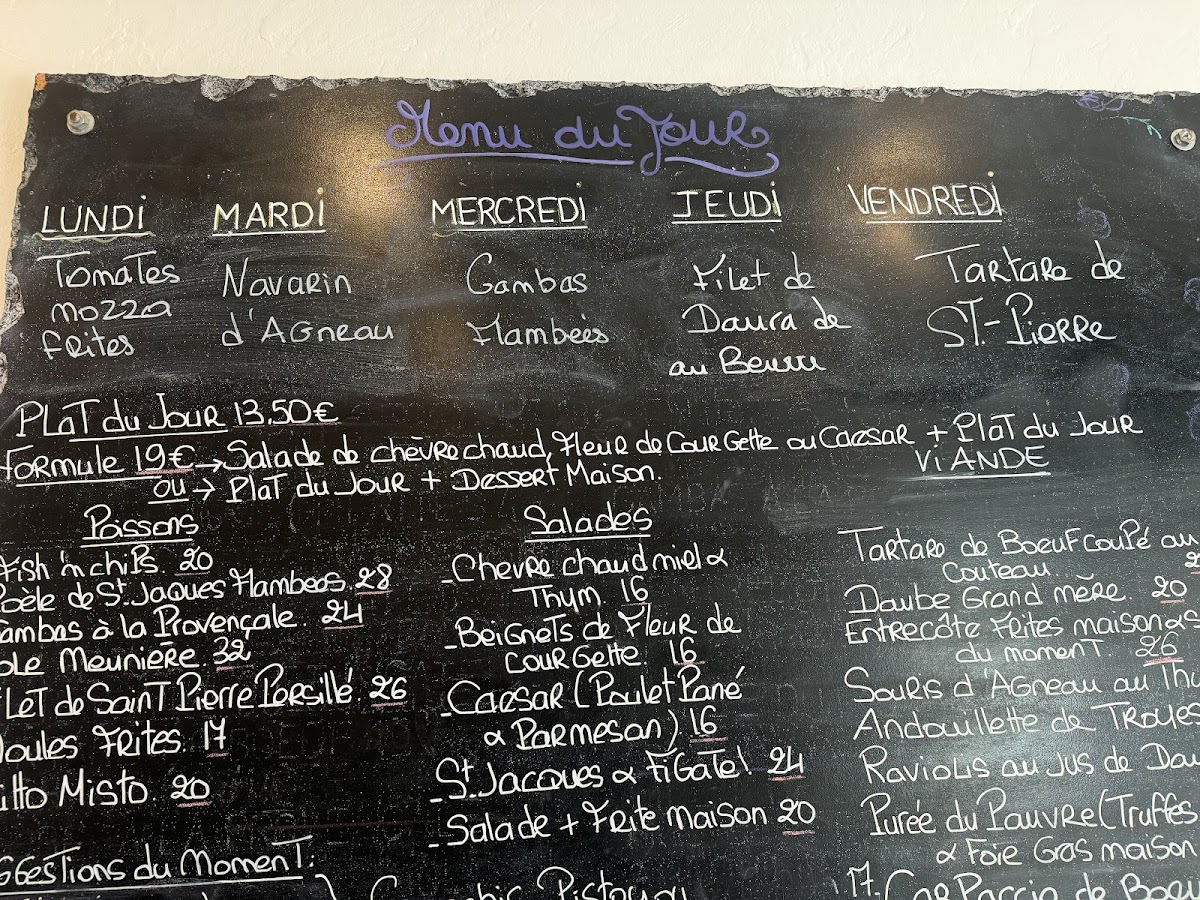 Menu du Jour
LUNDI
Tomates
mozza
frites
MARDI
Navarin
d'AGneau
MERCREDI
Gambas
Flambeès
JEUDI
Filet de
Daura de
au Beurre
VENDREDI
Tartare de
ST-Pierre
PLAT du Jour 13,50€
formule 19€ → Salade de chèvre chaud, Fleur de CourGette ou Caesar + PlaT du Jour
ou → PlaT du Jour + Dessert Maison.
Poissons
fish 'n chips. 20
de St Jacques Flambees. 28
ambas à la Provençale. 24
ole Meunière. 32
let de SainT Pierre Persillé. 26
oules Frites. 17
itto Misto. 20
Salades
- Chevre chaud miel &
Thym. 16
- BeigneTs de Fleur de
CourGette. 16
- Caesar (Poulet Pané
& Parmesan) 16
- St Jacques & FiGaTel. 24
- Salade + Frite maison 20
ViANDE
Tartare de Boeuf coupé au
Couteau.
Daube Grand mère. 20
Entrecôte Frites maison & S
du momenT. 26
Souris d'Agneau au Thy
Andouillette de Troyes
Raviolis au jus de Dau
Purée du Pauvre (Truffes
& Foie Gras maison
GGesTions du MomenT:
17. CarPaccio de Boeu